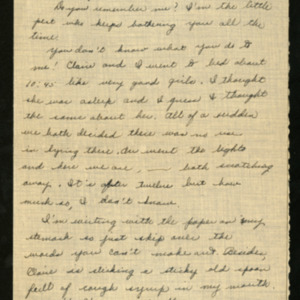 Do you remember me? I'm the little
pest who keeps bothering you all the
time.
You don't know what you do to
me! Claire and I went to bed about
10:45 like very good girls. I thought
she was asleep and I guess I thought
the same about her. All of a sudden
we both decided there was no use
in lying there. On went the lights
and here we are, — both scratching
away. It's after twelve but how
much so, I don't know.
I'm writing with the paper on my
stomach so just skip over the
words you can't make out. Besides,
Claire is sticking a sticky old spoon
full of cough syrup in my mouth